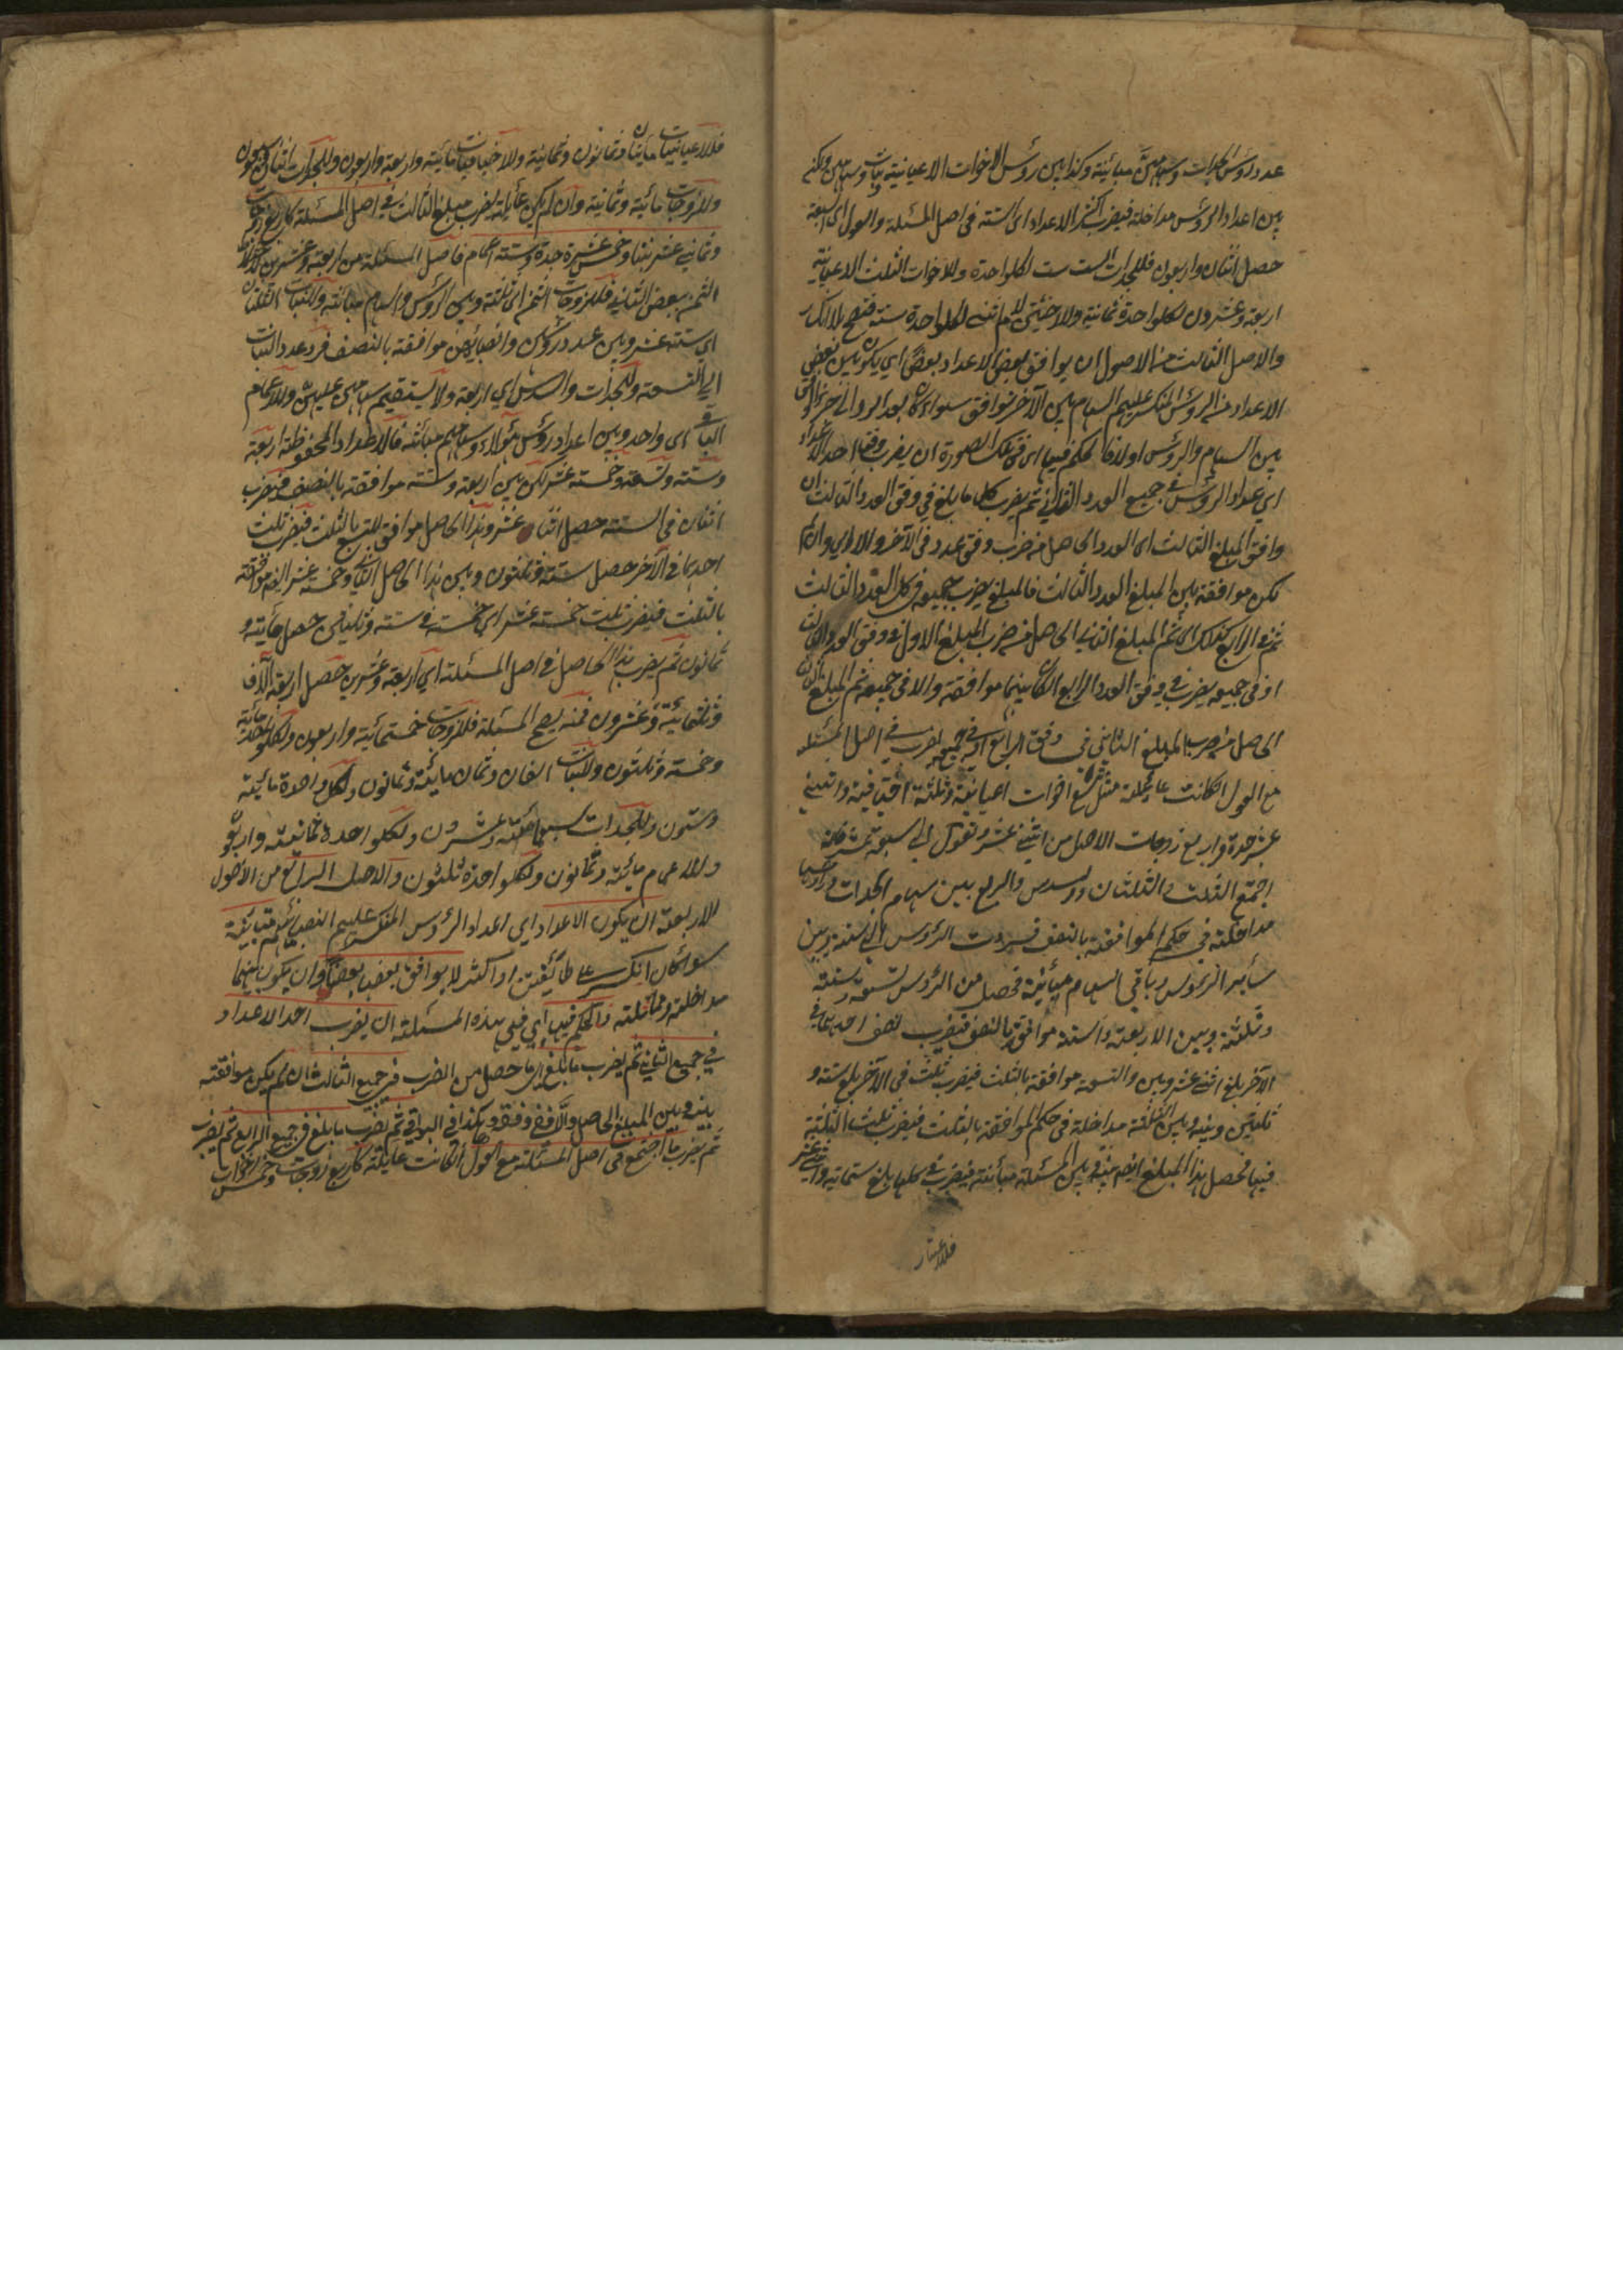 عدد رؤس الجدات وسهامهن مبائنة وكذا بين رؤس الاخوات الاعيانية وبين سهامهن ولكن
بين اعداد الرؤس مداخلة فيضرب اكثر الاعداد اى الستة فى اصل المسئلة والعول اى السبعة
حصل اثنان واربعون فللجدات الست ست لكلواحدة وللاخوات الثلث الاعيانية
اربعة وعشرون لكلواحدة ثمانية ولاختى لام اثنى لكلواحدة ستة فتصح بلا انكسار
والاصل الثالث من الاصول ان يوافق بعض الاعداد بعضا اي يكون بين بعض
الاعداد من الرؤس المنكسر عليهم السهام وبين الآخر توافق سواء كان
بين السهام والرؤس اولا فالحكم فيها اى فى تلك الصورة ان يضرب وفق احد الاعداد
اي اعداد الرؤس فى جميع العدد الثاني ثم يضرب كل ما بلغ في وفق العدد الثالث ان
وافق المبلغ الثالث اى العدد الحاصل من ضرب وفق عدد فى الآخر والا اي وان لم
تكن موافقة بين المبلغ والعدد الثالث فالمبلغ يضرب جميعه فى كل العدد الثالث
ثم فى الرابع كذلك اى ثم المبلغ الثاني الحاصل من ضرب المبلغ الاول فى وفق العدد الثالث
او فى جميعه يضرب فى وفق العدد الرابع ان كان بينهما موافقة والا فى جميعه ثم المبلغ
الحاصل من ضرب المبلغ الثاني فى وفق الرابع او فى جميعه يضرب فى اصل المسئلة
مع العول ان كانت عائلة مثل تسع اخوات اعيانية وثلثة اخيافية واثنى
عشر جدة واربع زوجات الاصل من اثنى عشر وتعول الى سبعة عشر فانه
اجتمع الثلث والثلثان والسدس والربع بين سهام الجدات ورؤسها
مداخلة فى حكم الموافقة بالنصف فردت الرؤس الى الستة وبين
سائر الرؤس وباقي السهام مبائنة فحصل من الرؤس تسعة وستة
وثلثة وبين الاربعة والستة موافقة بالنصف فيضرب نصف احدهما فى
الآخر بلغ اثنى عشر وبين والتسعة موافقة بالثلث فيضرب ثلث فى الآخر بلغ ستة و
ثلثين وبينه وبين الثلثة مداخلة فى حكم الموافقة بالثلث فيضرب ثلث الثلثة
فيها فحصل هذا المبلغ ايضا بينه وبين المسئلة مبائنة فيضرب فى كلها بلغ ستمائة واثنى عشر
فللاعيانيات مايتان وثمانون وثمانية وللاخيافيات مائة واربعة واربعون وللجدات اثنان وسبعون
وللزوجات مائة وثمانية وان لم يكن عائلة يضرب مبلغ الثالث فى اصل المسئلة كاربع زوجات
وثماني عشر بنتا وخمس عشرة جدة وستة اعمام فاصل المسئلة من اربعة وعشرين لاختلاط
الثمن ببعض الثاني فللزوجات الثمن اى ثلثة وبين الرؤس والسهام مبائنة وللبنات الثلثان
اي ستة عشر وبين عدد رؤسهن وانصبائهن موافقة بالنصف فرد عدد البنات
الى التسعة وللجدات والسدس اي اربعة ولا يستقيم سهامهن عليهن وللاعمام
الباقى اى واحد وبين اعداد رؤس هؤلاء وسهامهم مبائنة فالاعداد المحفوظة اربعة
وستة وتسعة وخمسة عشر لكن بين اربعة وستة موافقة بالنصف فيضرب
اثنان فى الستة حصل اثنا عشر وهذا الحاصل موافق للتسع بالثلث فيضرب ثلث
احدهما فى الآخر حصل ستة وثلثون وبين هذا الحاصل الثانى وخمسة عشر ايضا موافقة
بالثلث فيضرب ثلث خمسة عشر اي خمسة فى ستة وثلثين حصل مائة و
ثمانون ثم يضرب هذا الحاصل فى اصل المسئلة اي اربعة وعشرين حصل اربعة آلاف
وثلثمائة وعشرون فمنه تصح المسئلة فللزوجات خمسمائة واربعون ولكلواحدة مائة
وخمسة وثلثون وللبنات الفان وثمان مائة وثمانون ولكل واحدة مائة
وستون وللجدات سبعمائة وعشرون ولكلواحدة ثمانية واربعون
وللاعمام مائة وثمانون ولكلواحدة ثلثون والاصل الرابع من الاصول
للاربعة ان يكون الاعداد اي اعداد الرؤس المنكسر عليهم النصباء متبائنة
سواء كان انكسر على طائفتين او اكثر لا يوافق بعضها بعضا وان يكون بينهما
مداخلة ومماثلة فالحكم فيها اي فى هذه المسئلة ان يضرب احد الاعداد
في جميع الثاني ثم يضرب ما بلغ اي ما حصل من الضرب في جميع الثالث ان لم يكن موافقة
بينه وبين المبلغ الحاصل والا ففى وفقه وهكذا فى البواقي ثم يضرب ما بلغ فى جميع الرابع ثم يضرب
ثم يضرب ما اجتمع فى اصل المسئلة مع العول ان كانت عائلة كاربع زوجات وخمس اخوات